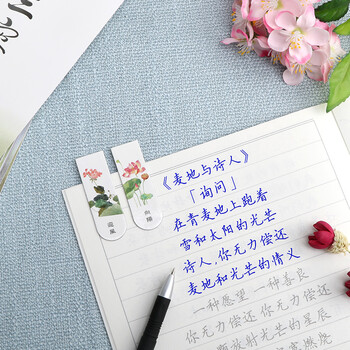 《麦地与诗人》
「询问」
在青麦地上跑着
雪和太阳的光芒
诗人,你无力偿还
麦地和光芒的情义
一种愿望 一种善良
你无力偿还
你无力偿还
放射光芒的星辰
燃烧